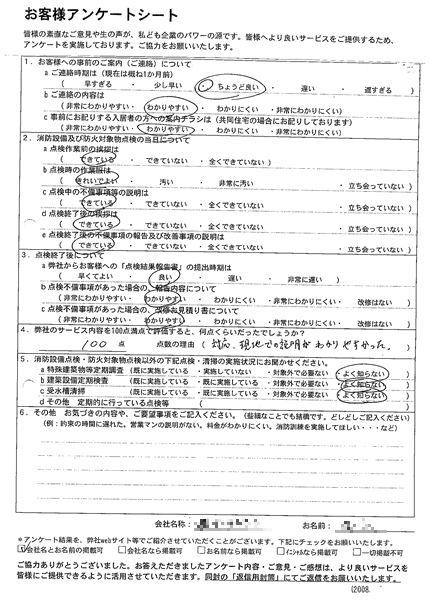 お客様アンケートシート
皆様の素直なご意見や生の声が、私ども企業のパワーの源です。皆様へより良いサービスをご提供するため、
アンケートを実施しております。ご協力をお願いいたします。
1．お客様への事前のご案内（ご連絡）について
a ご連絡時期は（現在は概ね1か月前）
（ 早すぎる ・ 少し早い ・ ちょうど良い ・ 遅い ・ 遅すぎる ）
b ご連絡の内容は
（非常にわかりやすい ・ わかりやすい ・ わかりにくい ・非常にわかりにくい）
c 事前にお配りする入居者の方への案内チラシは（共同住宅の場合にお配りしております）
（非常にわかりやすい ・ わかりやすい ・ わかりにくい ・非常にわかりにくい）
2．消防設備及び防火対象物点検の当日について
a 点検作業前の挨拶は
（ できている ・ できていない ・全くできていない ）
b 点検時の作業服は
（ きれいでよい ・ 汚い ・ 非常に汚い ・立ち会っていない ）
c 点検中の不備事項等の説明は
（ できている ・ できていない ・全くできていない ・立ち会っていない ）
d 点検終了後の挨拶は
（ できている ・ できていない ・全くできていない ・立ち会っていない ）
e 点検終了後の不備事項の報告及び改善事項の説明は
（ できている ・ できていない ・全くできていない ・立ち会っていない ）
3．点検終了後について
a 弊社からお客様への「点検結果報告書」の提出時期は
（ 早くてよい ・ 良い ・ 遅い ・ 非常に遅い ）
b 点検不備事項があった場合の、報告内容について
（非常にわかりやすい ・ わかりやすい ・わかりにくい ・非常にわかりにくい ・ 改修はない）
c 点検不備事項があった場合の、改修お見積り書について
（非常にわかりやすい ・ わかりやすい ・わかりにくい ・非常にわかりにくい ・ 改修はない）
4．弊社のサービス内容を100点満点で評価すると、何点くらいだったでしょうか？
100 点 点数の理由（ 対応、現地での説明がわかりやすかった。 ）
5．消防設備点検・防火対象物点検以外の下記点検・清掃の実施状況にお聞かせください。
a 特殊建築物等定期調査 （既に実施している ・実施していない ・対象外で必要ない ・よく知らない）
b 建築設備定期検査 （既に実施している ・既に実施している ・対象外で必要ない ・よく知らない）
c 受水槽清掃 （既に実施している ・既に実施している ・対象外で必要ない ・よく知らない）
d その他 定期的に行っている点検等 （ ）
6．その他 お気づきの内容や、ご要望事項をご記入ください。（些細なことでも結構です。どしどしご記入ください）
（例：約束の時間に遅れた。営業マンの説明がない。料金がわかりにくい。消防訓練を実施してほしい・・・など）
会社名称： お名前：
*アンケート結果を、弊社Webサイト等でご紹介させていただくことがございます。下記にチェックをお願いいたします。
☑会社名とお名前の掲載可 □会社名なら掲載可 □お名前なら掲載可 □イニシャルなら掲載可 □一切掲載不可
ご協力ありがとうございました。お答えいただきましたアンケート内容・ご意見・ご感想は、より良いサービスを
皆様にご提供できるように活用させていただきます。同封の「返信用封筒」にてご返信をお願いいたします。
(2008.